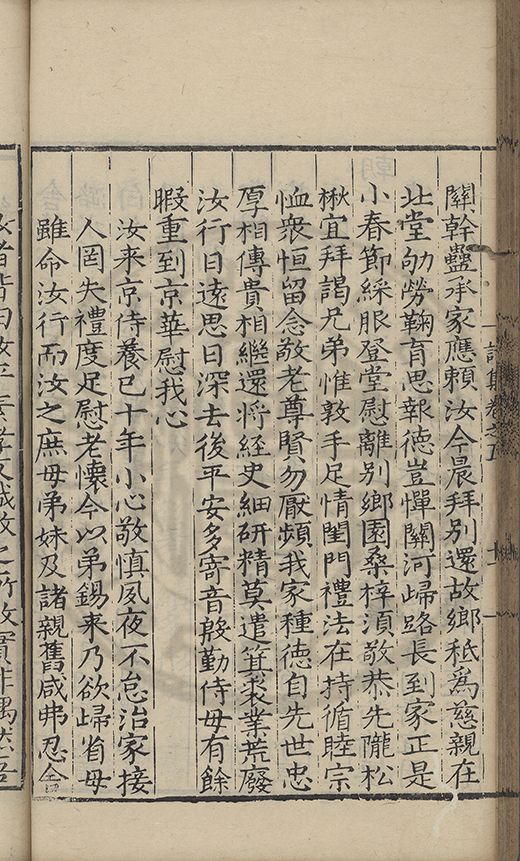 關幹蠱承家應頼汝今晨拜別還故鄉秪爲慈親在
北堂劬勞鞠育思報徳豈憚關河歸路長到家正是
小春節綵服登堂慰離別鄉園桑梓湏敬恭先隴松
楸宜拜謁兄弟惟敦手足情閨門禮法在持循睦宗
恤衆恒留念敬老尊賢勿厭頻我家種徳自先世忠
厚相傳貴相繼還将經史細研精莫遣箕裘業荒廢
汝行日遠思日深去後平安多寄音殷勤侍母有餘
暇重到京華慰我心
汝来京侍養已十年小心敬慎夙夜不怠治家接
人罔失禮度足慰老懷今以弟錫来乃欲歸省母
雖命汝行而汝之庶母弟妹及諸親舊咸弗忍舍
詩集卷之五